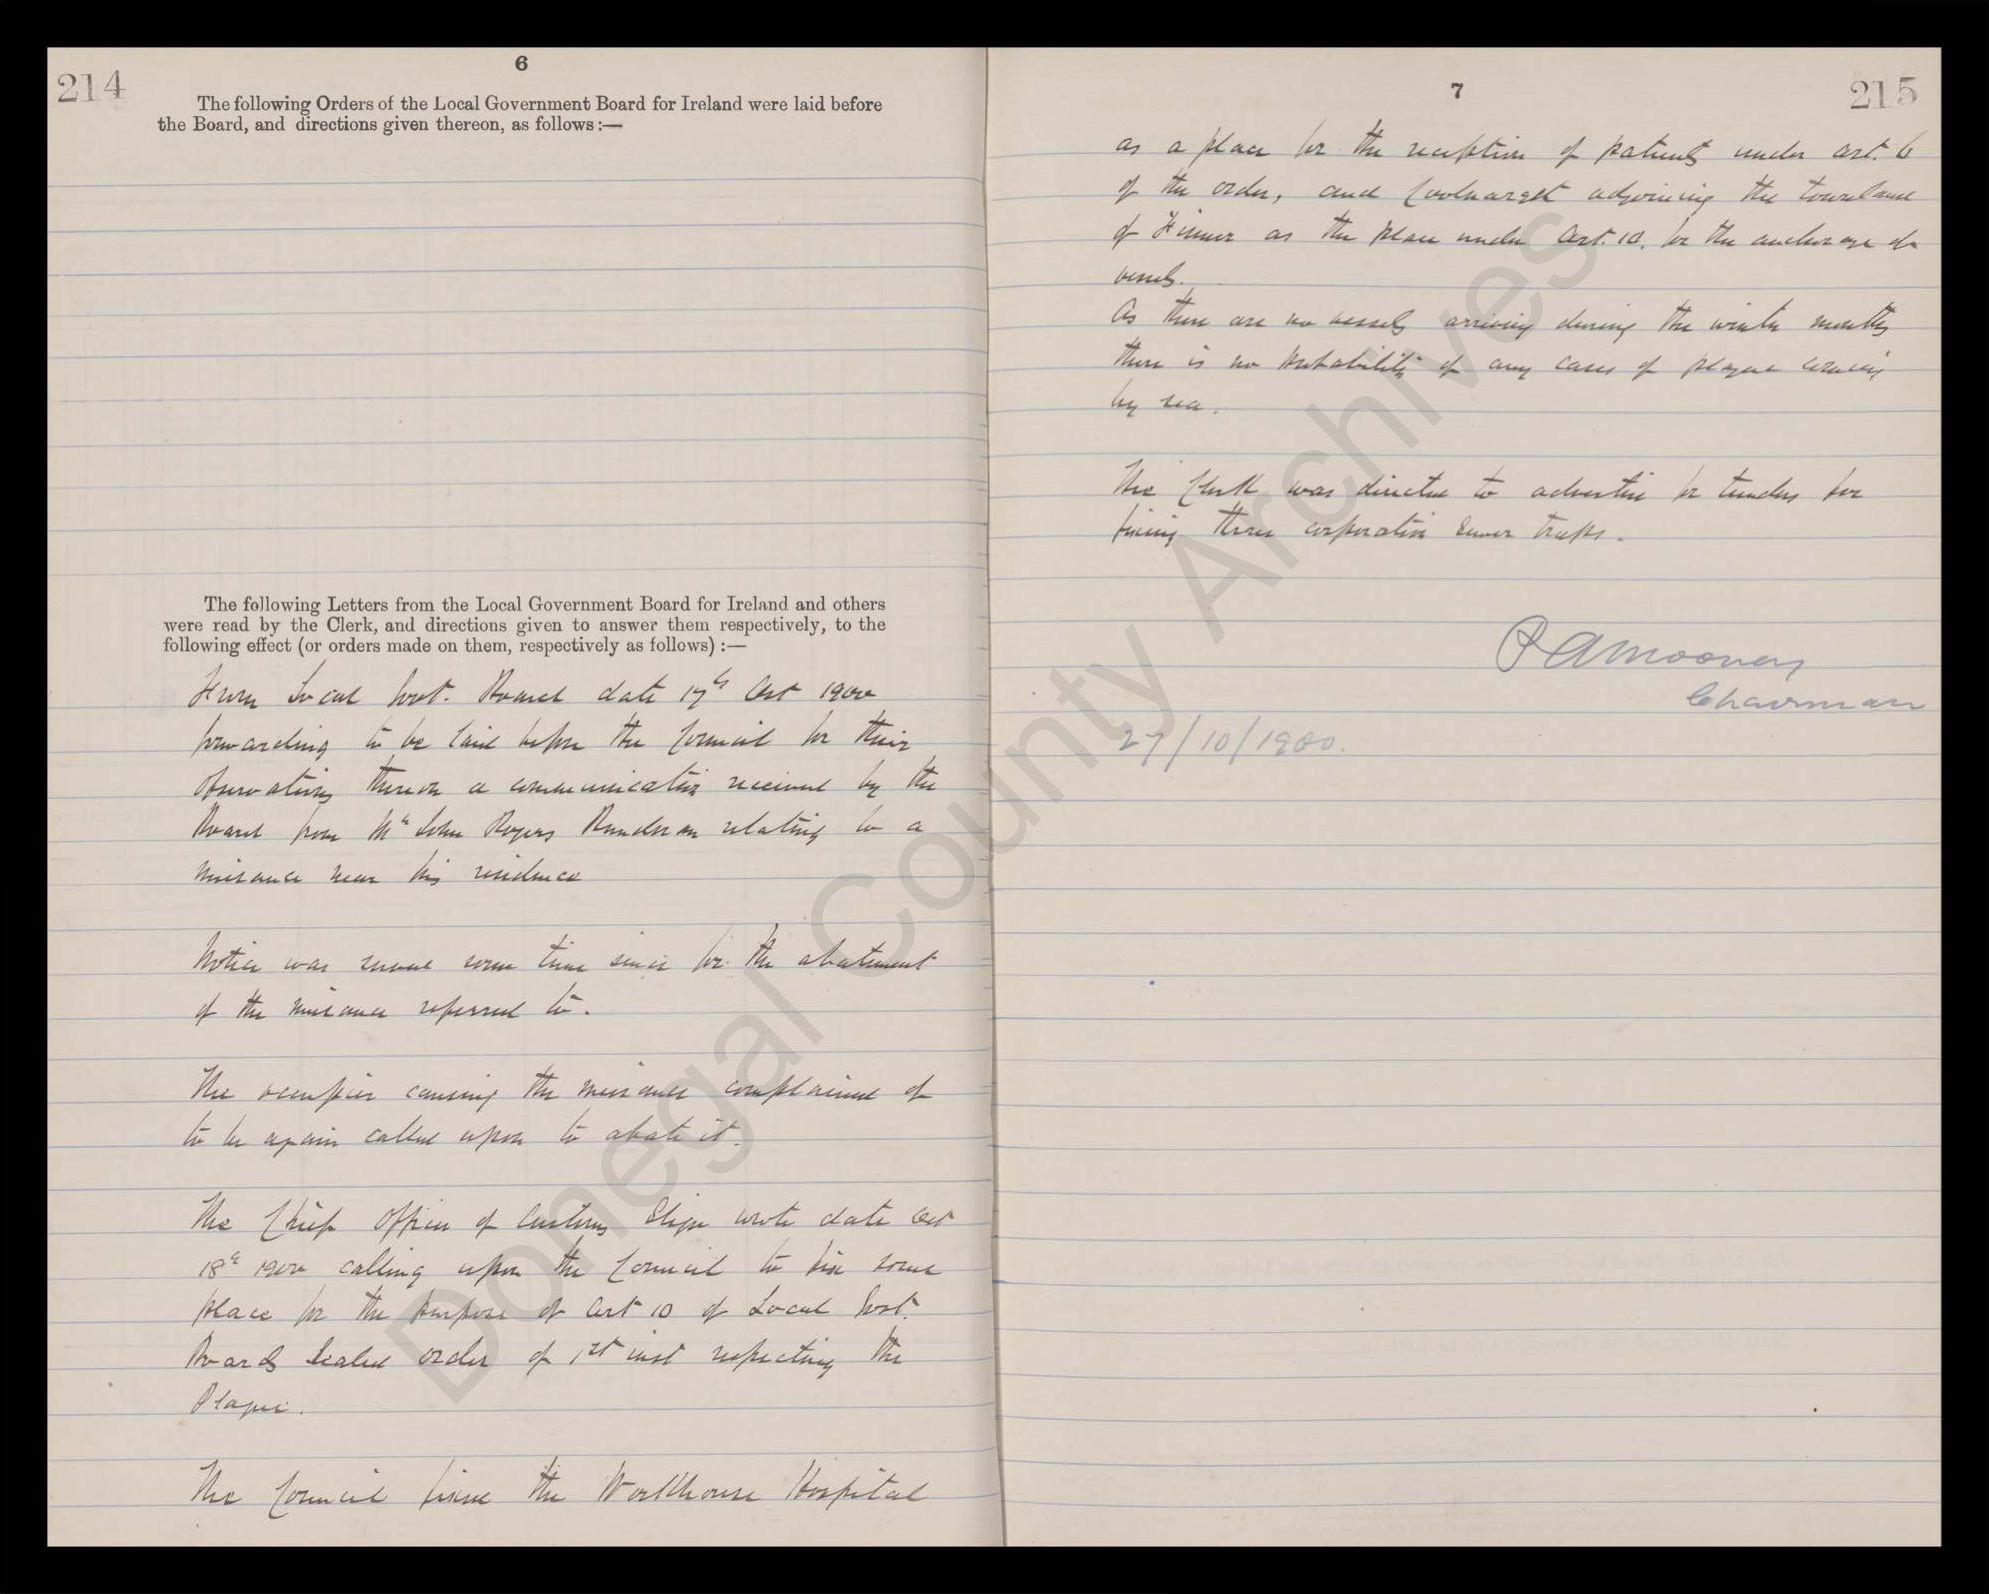 214
6
The following Orders of the Local Government Board for Ireland were laid before
the Board, and directions given thereon, as follows :—
The following Letters from the Local Government Board for Ireland and others
were read by the Clerk, and directions given to answer them respectively, to the
following effect (or orders made on them, respectively as follows) :—
From Local Govt. Board date 17th Oct 1900
forwarding to be laid before the Council for their
observations thereon a communication received by the
Board from Mr John Rogers Bundoran relating to a
nuisance near his residence
Notice was served some time since for the abatement
of the nuisance referred to.
The occupier causing the nuisance complained of
to be again called upon to abate it.
The Chief Officer of Customs Sligo wrote date Oct
18th 1900 calling upon the Council to fix some
place for the purpose of Art 10 of Local Govt.
Boards Sealed Order of 1st inst respecting the
Plague.
The Council fixed the Workhouse Hospital
7
215
as a place for the reception of patients under art. 6
of the order, and adjoining the townland
of Finner as the place under Art. 10. for the anchorage of
vessels.
As there are no vessels arriving during the winter months
there is no probability of any cases of plague coming
by sea.
The Clerk was directed to advertise for tenders for
fixing three corporation sewer traps.
P A Mooney
Chairman
27/10/1900.
Donegal County Archives